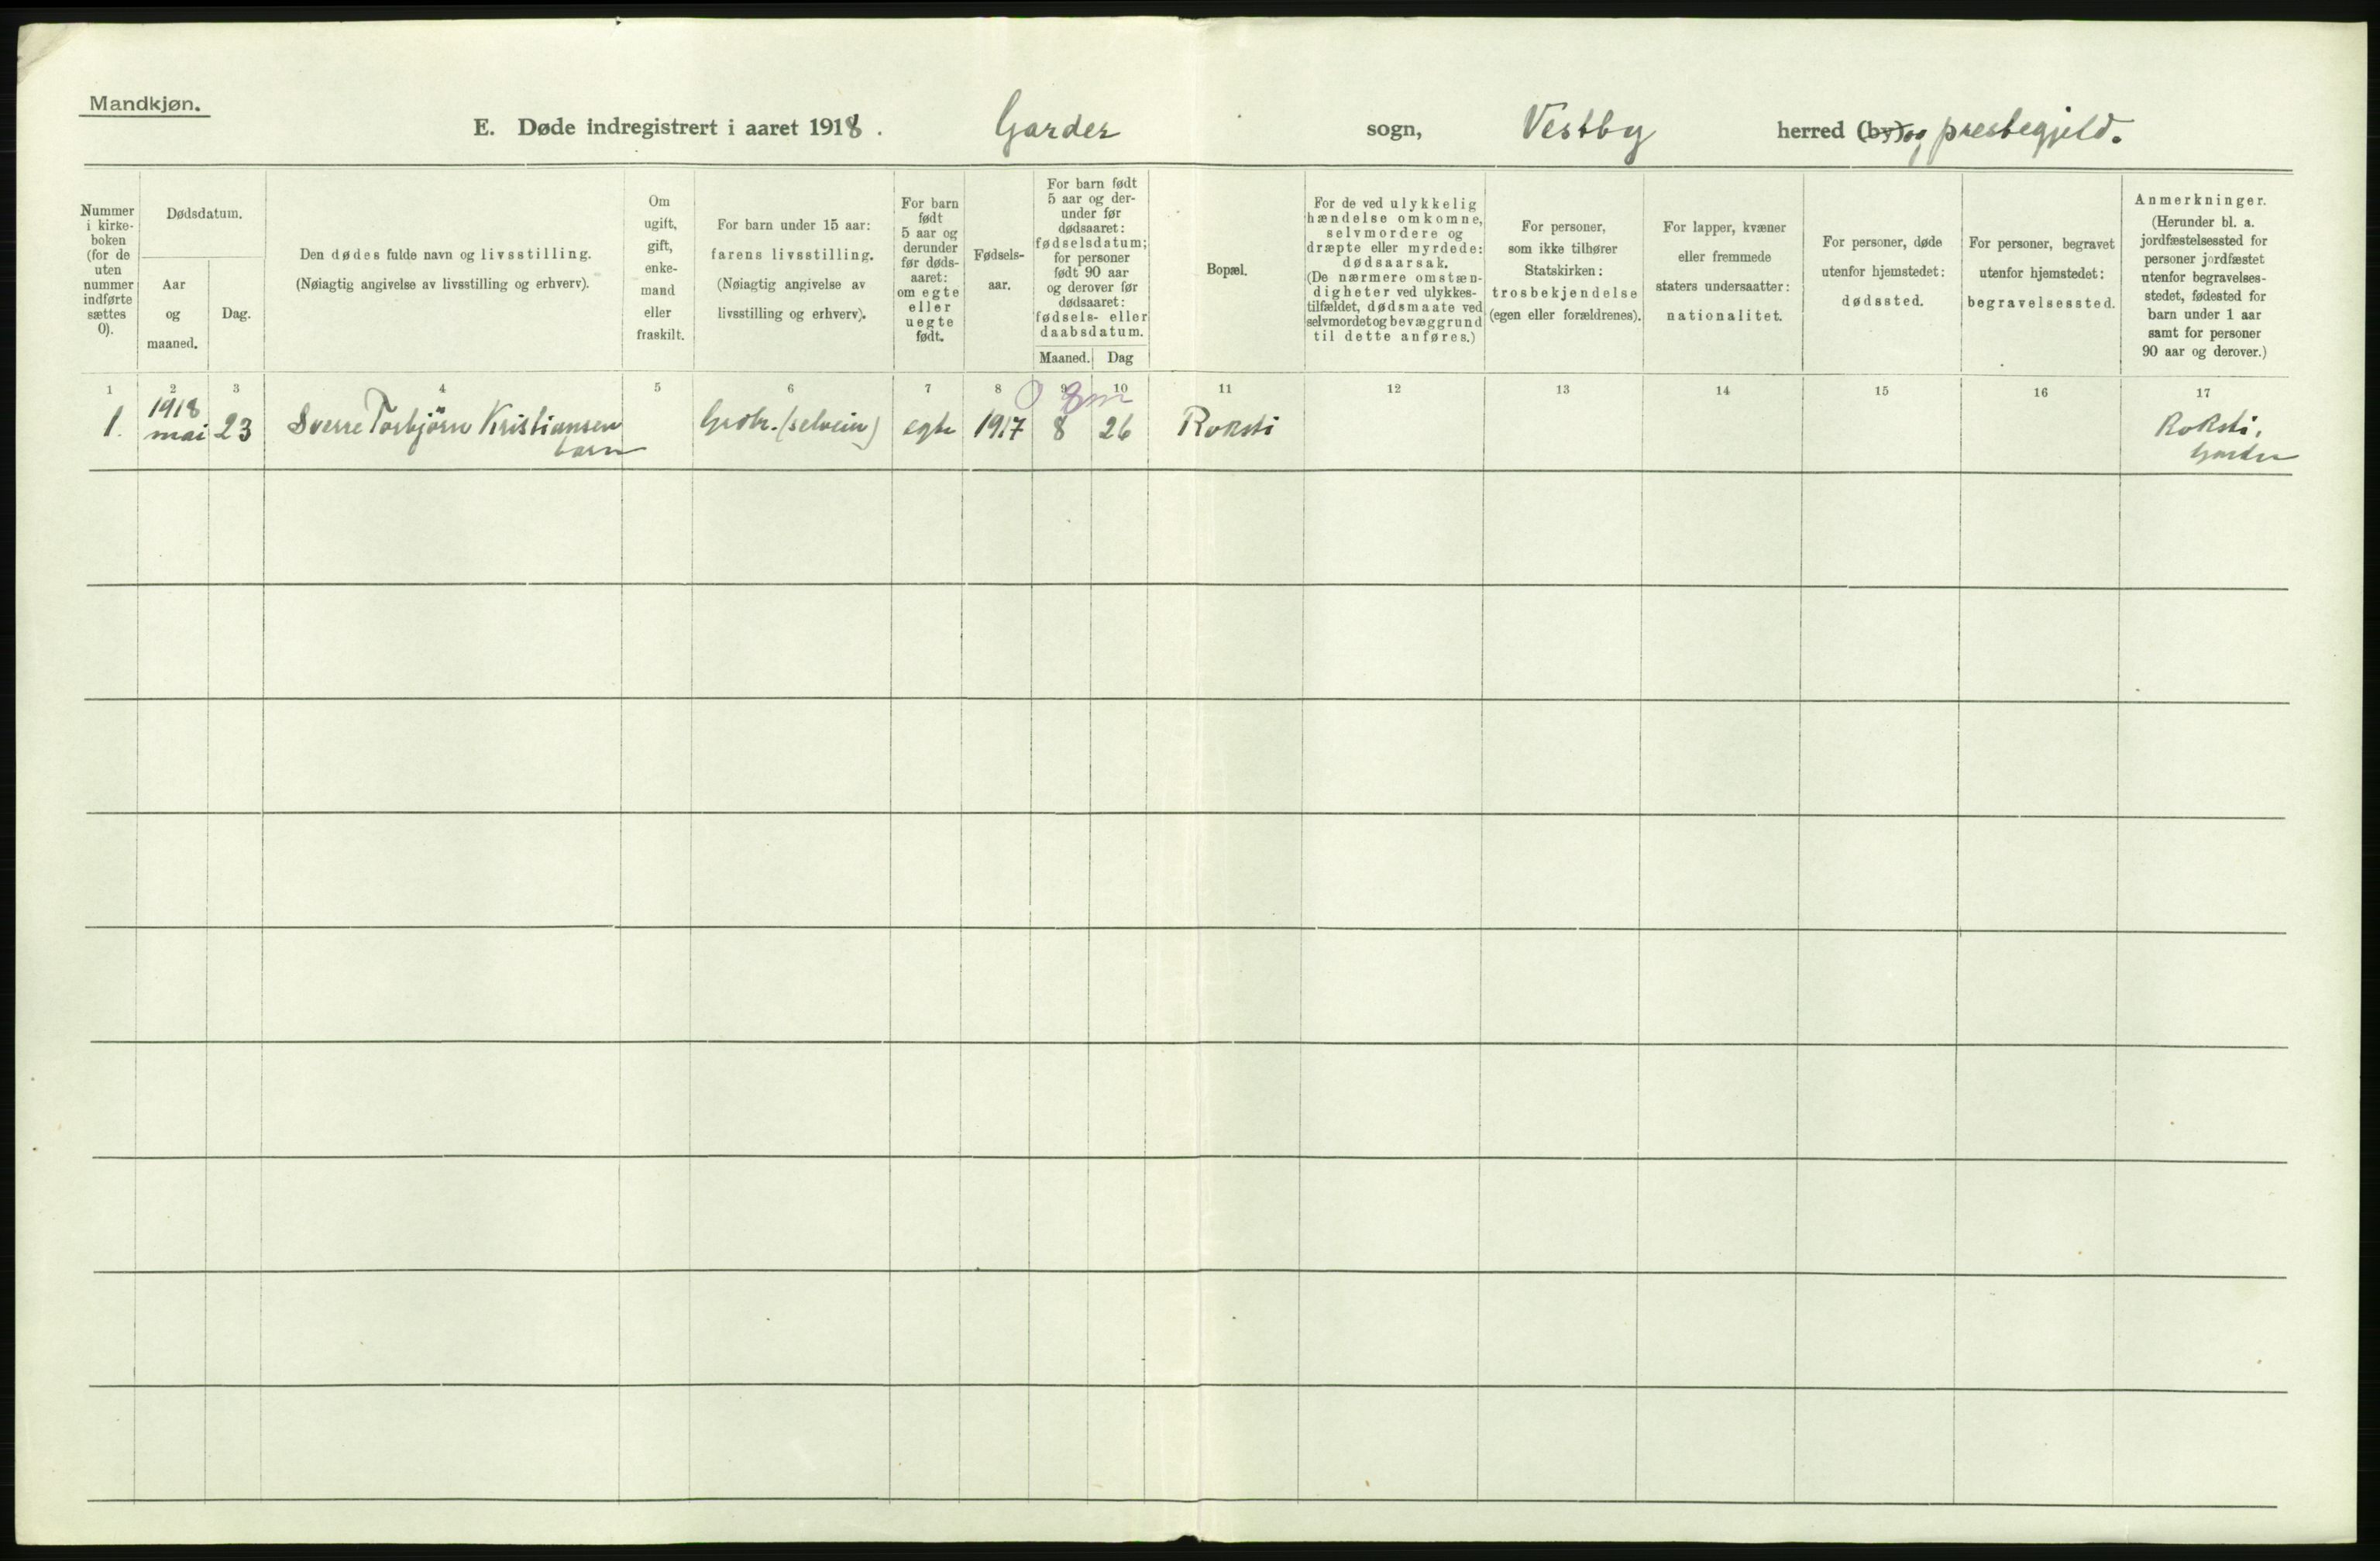 Mandkjøn.
E. Døde indregistrert i aaret 1918. Garder sogn, Vestby herred (by) og prestegjeld.
Nummer
i kirke-
boken
(for de
uten
nummer
indførte
sættes
0).
Dødsdatum.
Aar
og
maaned.
Dag.
Den dødes fulde navn og livsstilling.
(Nøiagtig angivelse av livsstilling og erhverv).
Om
ugift,
gift,
enke-
mand
eller
fraskilt.
For barn under 15 aar:
farens livsstilling.
(Nøiagtig angivelse av
livsstilling og erhverv).
For barn
født
5 aar og
derunder
før døds-
aaret:
om egte
eller
uegte
født.
Fødsels-
aar.
For barn født
5 aar og der-
under før
dødsaaret:
fødselsdatum;
for personer
født 90 aar
og derover før
dødsaaret:
fødsels- eller
daabsdatum.
Maaned. Dag
Bopæl.
For de ved ulykkelig
hændelse omkomne,
selvmordere og
dræpte eller myrdede:
dødsaarsak.
(De nærmere omstæn-
digheter ved ulykkes-
tilfældet, dødsmaate ved
selvmordet og bevæggrund
til dette anføres.)
For personer,
som ikke tilhører
Statskirken:
trosbekjendelse
(egen eller forældrenes).
For lapper, kvæner
eller fremmede
staters undersaatter:
nationalitet.
For personer, døde
utenfor hjemstedet:
dødssted.
For personer, begravet
utenfor hjemstedet:
begravelsessted.
Anmerkninger.
(Herunder bl. a.
jordfæstelsessted for
personer jordfæstet
utenfor begravelses-
stedet, fødested for
barn under 1 aar
samt for personer
90 aar og derover.)
1 2 3 4 5 6 7 8 9 10 11 12 13 14 15 16 17
0 8m
1918
1. mai 23 Sverre Torbjörn Kristiansen Grdbr. (selveier) egte 1917 8 26 Roksti Roksti,
barn Garder